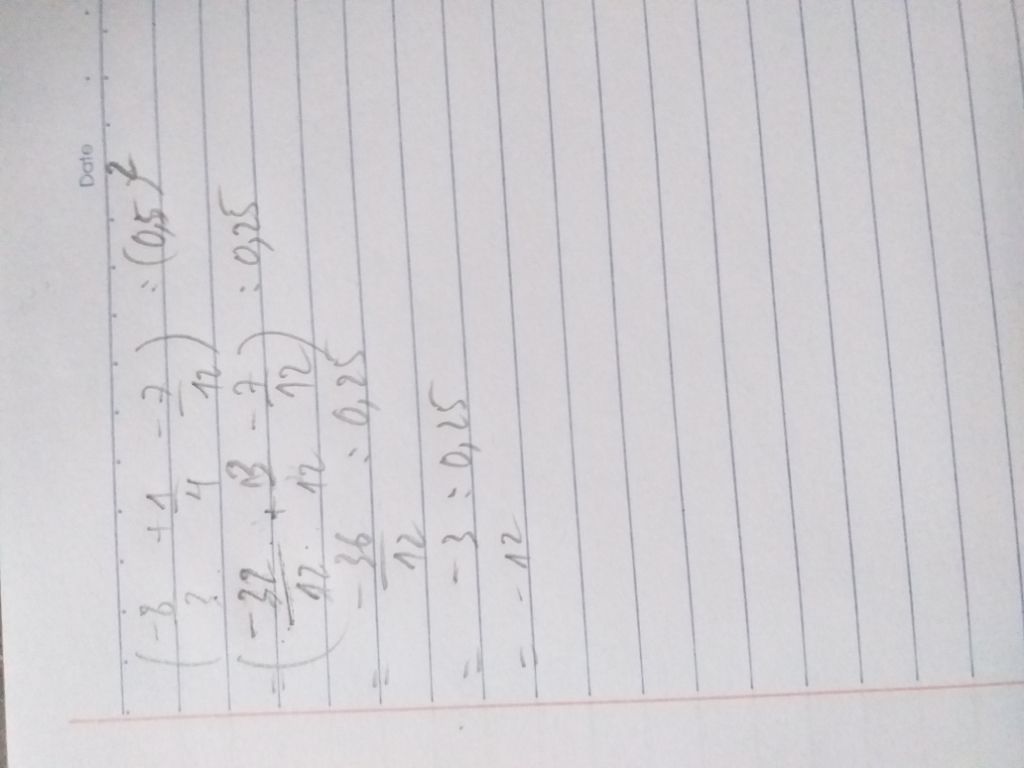 Date
(-8/3 + 1/4 - 7/12) : (0,5)²
= (-32/12 + 3/12 - 7/12) : 0,25
= -36/12 : 0,25
= -3 : 0,25
= -12